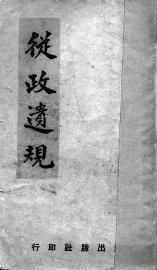 從政遺規
出版社印行